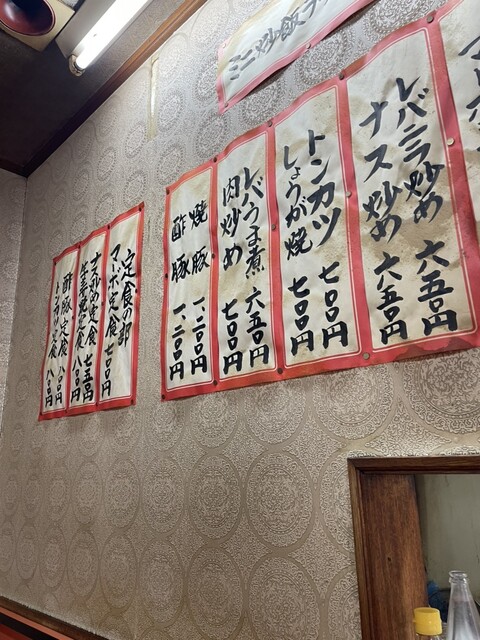 ミニ炒飯
レバニラ炒め 六五〇円
ナス炒め 六五〇円
トンカツ 七〇〇円
しょうが焼 七〇〇円
レバうま煮 六五〇円
肉炒め 七〇〇円
焼豚 一、二〇〇円
酢豚 一、二〇〇円
定食の部
マーボ定食 七〇〇円
ナス炒め定食 七五〇円
生姜焼定食 八〇〇円
酢豚定食
トンカツ定食 八〇〇円